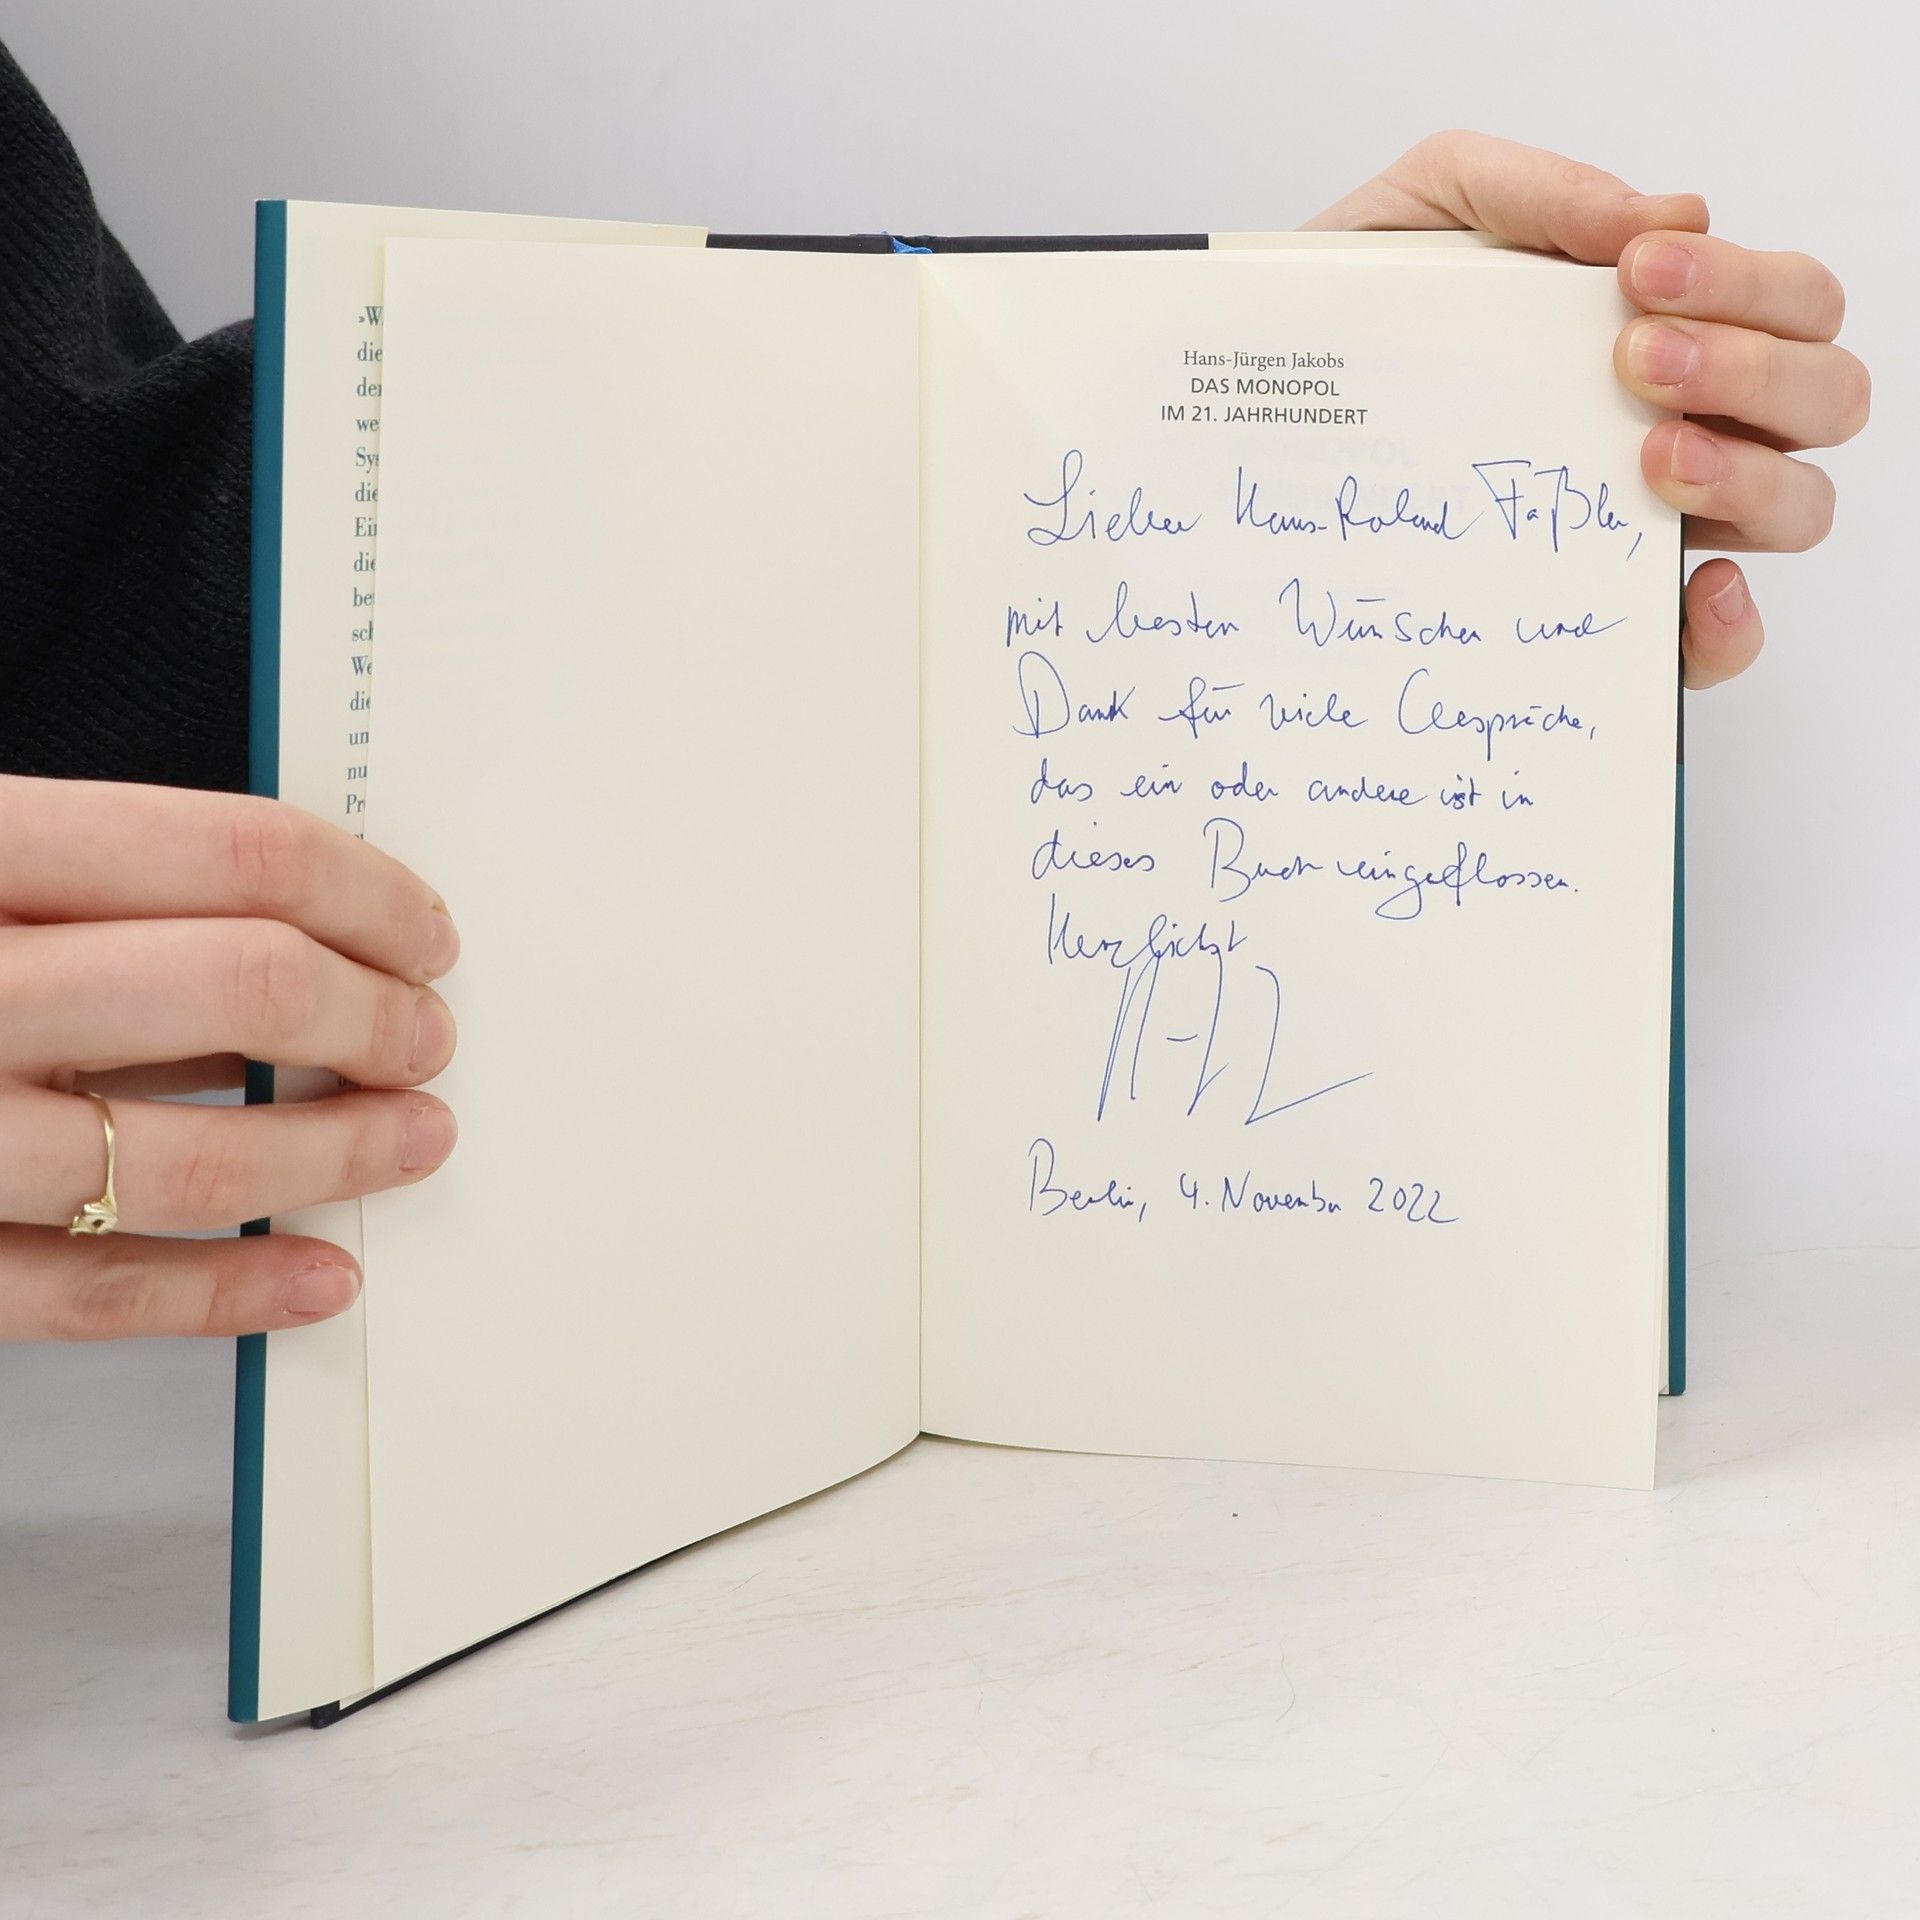 »W
die
der
we
Sys
die
Ein
die
be
sch
We
die
un
nu
Pr
Hans-Jürgen Jakobs
DAS MONOPOL
IM 21. JAHRHUNDERT
Lieber Hans-Roland Fäßler,
mit besten Wünschen und
Dank für viele Gespräche,
das ein oder andere ist in
dieses Buch eingeflossen.
Herzlichst
H-J J
Berlin, 4. November 2022